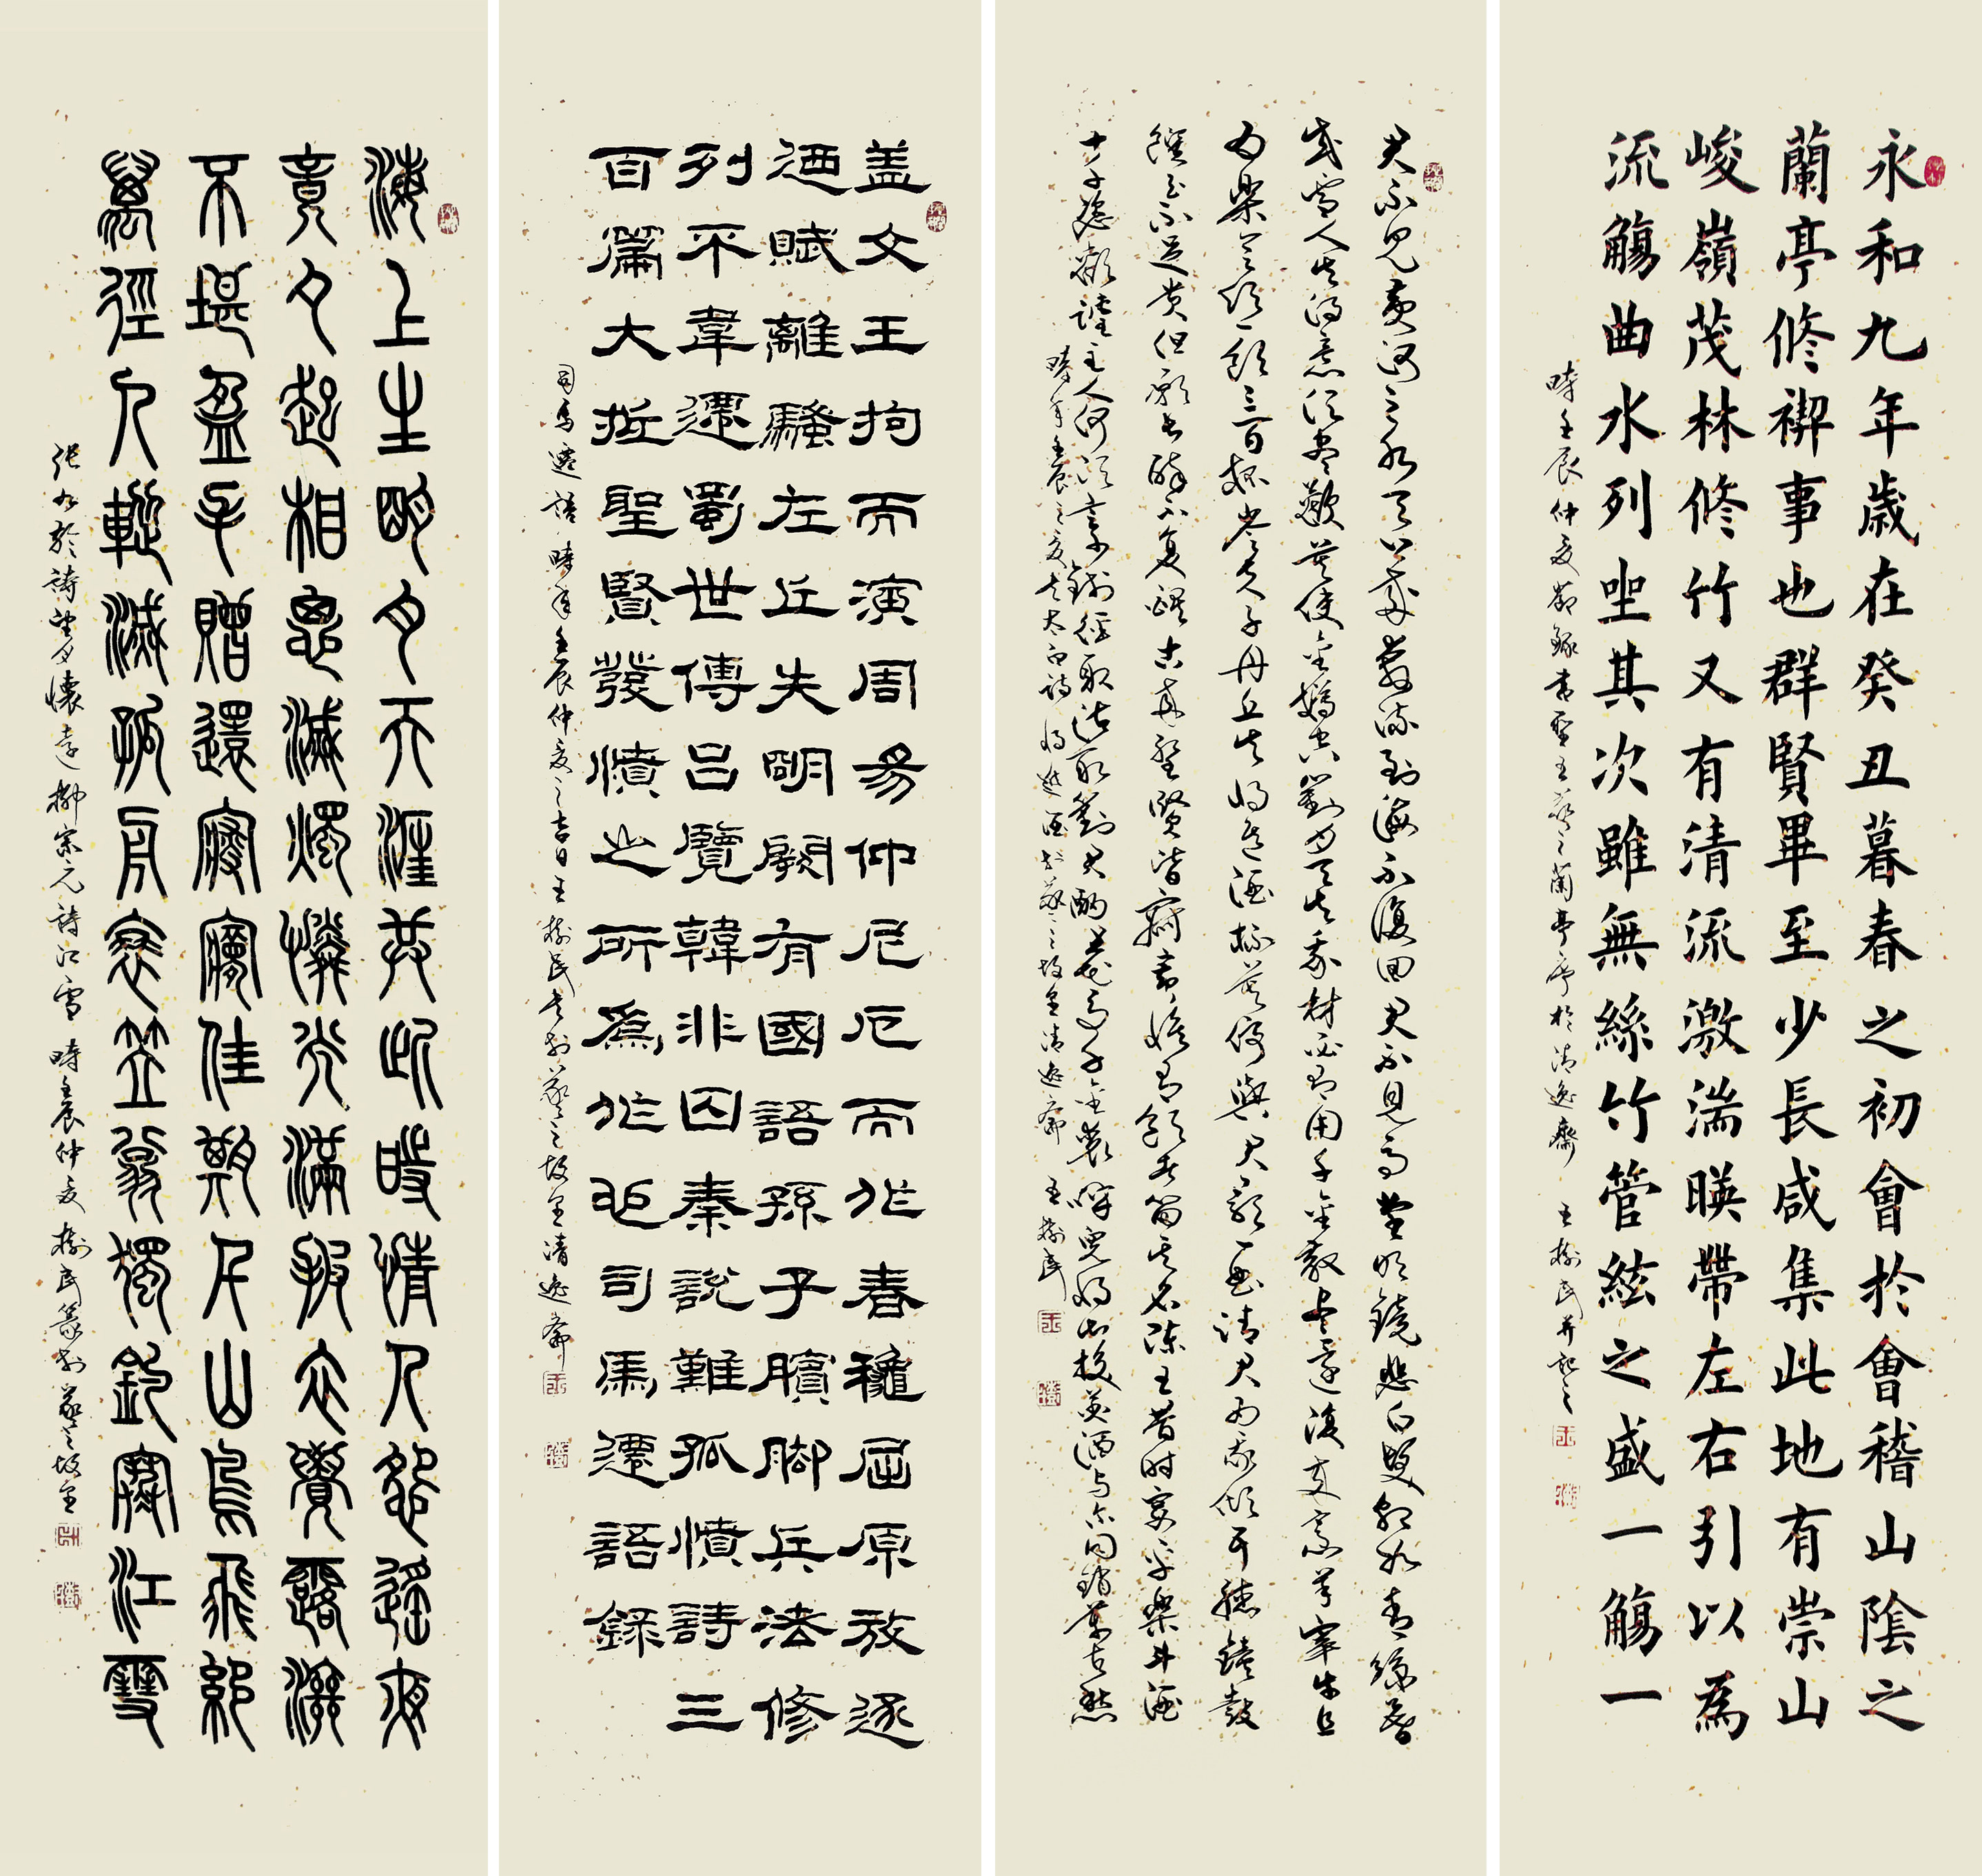 永和九年歲在癸丑暮春之初會於會稽山陰之
蘭亭修禊事也群賢畢至少長咸集此地有崇山
峻嶺茂林修竹又有清流激湍暎帶左右引以為
流觴曲水列坐其次雖無絲竹管絃之盛一觴一
時壬辰仲夏節錄書聖王羲之蘭亭序於清逸齋 王樹民并記之
君不見黃河之水天上來奔流到海不復回君不見高堂明鏡悲白髮朝如青絲暮
成雪人生得意須盡歡莫使金樽空對月天生我材必有用千金散盡還復來烹羊宰牛且
為樂會須一飲三百杯岑夫子丹丘生將進酒杯莫停與君歌一曲請君為我傾耳聽鐘鼓
饌玉不足貴但願長醉不復醒古來聖賢皆寂寞惟有飲者留其名陳王昔時宴平樂斗酒
十千恣歡謔主人何須言少錢徑須沽取對君酌五花馬千金裘呼兒將出換美酒與爾同銷萬古愁
時年壬辰之夏書太白詩將進酒於羲之故里清逸齋 王樹民
盖文王拘而演周易仲尼厄而作春穐屈原放逐
迺賦離騷左丘失明厥有國語孫子臏脚兵法修
列不韋遷蜀世傳呂覽韓非囚秦說難孤憤詩三
百篇大抵聖賢發憤之所為作也司馬遷語錄
司馬遷語 時年壬辰仲夏之吉日王樹民書於羲之故里清逸齋
海上生明月天涯共此時情人怨遙夜
竟夕起相思滅燭憐光滿披衣覺露滋
不堪盈手贈還寢夢佳期千山鳥飛絕
萬徑人蹤滅孤舟蓑笠翁獨釣寒江雪
張九齡詩望月懷遠柳宗元詩江雪 時壬辰仲夏樹民篆於羲之故里